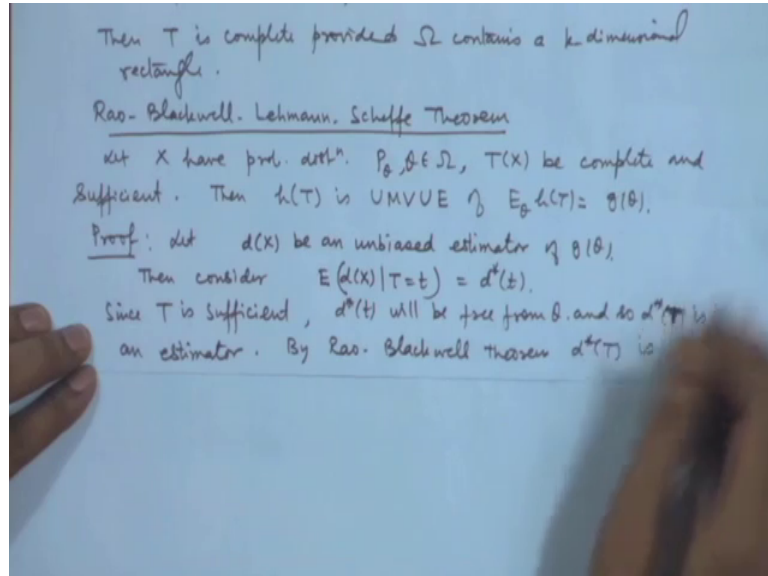 Then T is complete provided Ω contains a k dimensional
rectangle.
Rao-Blackwell-Lehmann-Scheffe Theorem
Let X have prob. distⁿ. P_θ, θ ∈ Ω, T(X) be complete and
Sufficient. Then h(T) is UMVUE of E_θ h(T) = g(θ).
Proof: Let d(X) be an unbiased estimator of g(θ).
Then consider E(d(X) | T=t) = d*(t).
Since T is sufficient, d*(t) will be free from θ. and so d*(T) is
an estimator. By Rao-Blackwell theorem d*(T) is